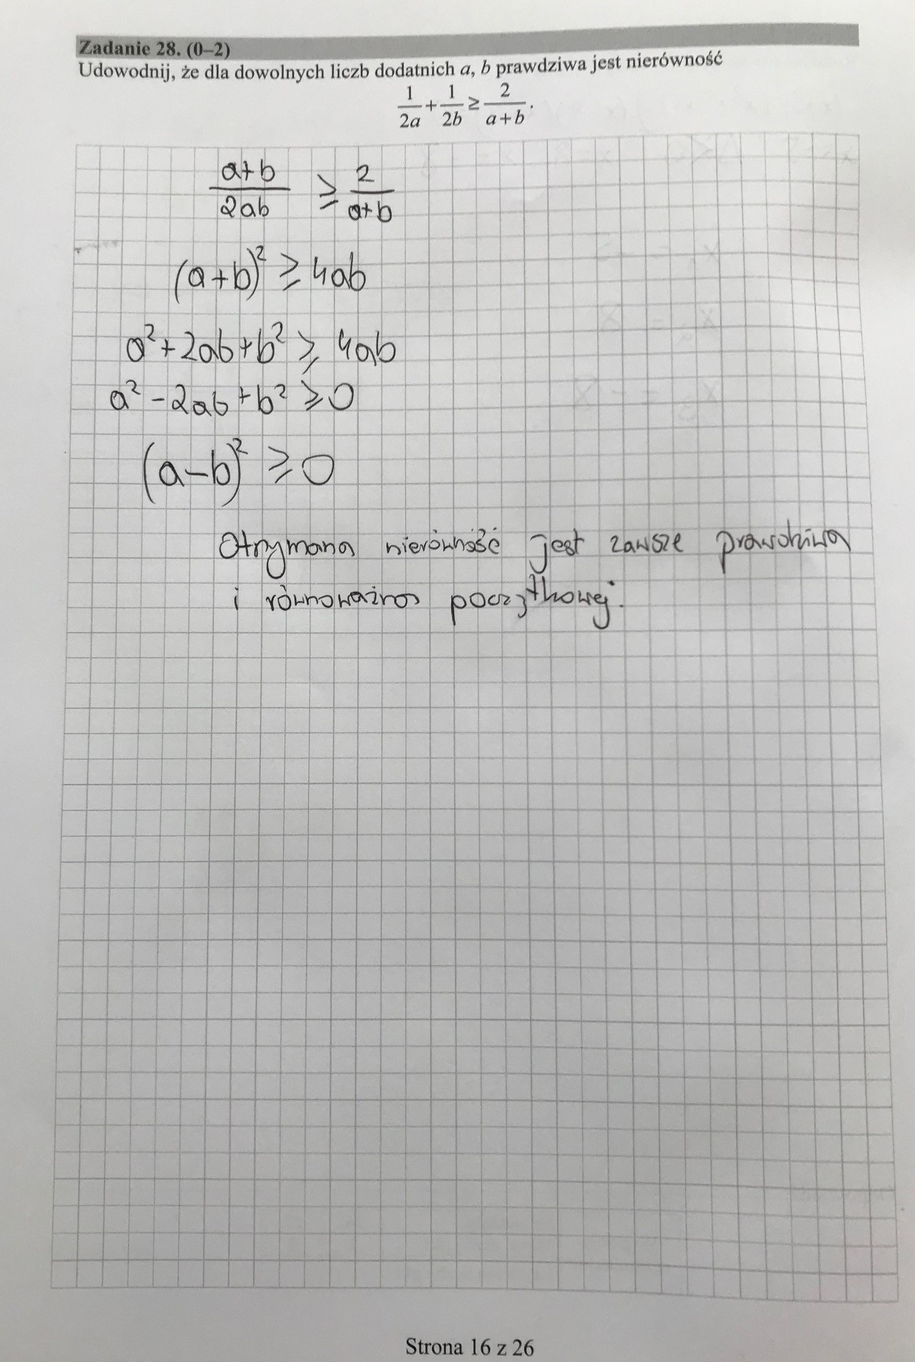 Zadanie 28. (0–2)
Udowodnij, że dla dowolnych liczb dodatnich a, b prawdziwa jest nierówność
1/(2a) + 1/(2b) ≥ 2/(a+b).
(a+b)/(2ab) ≥ 2/(a+b)
(a+b)² ≥ 4ab
a² + 2ab + b² ≥ 4ab
a² - 2ab + b² ≥ 0
(a-b)² ≥ 0
Otrzymana nierówność jest zawsze prawdziwa
i równoważna początkowej.
Strona 16 z 26